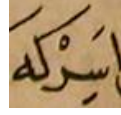 اسِرْكه